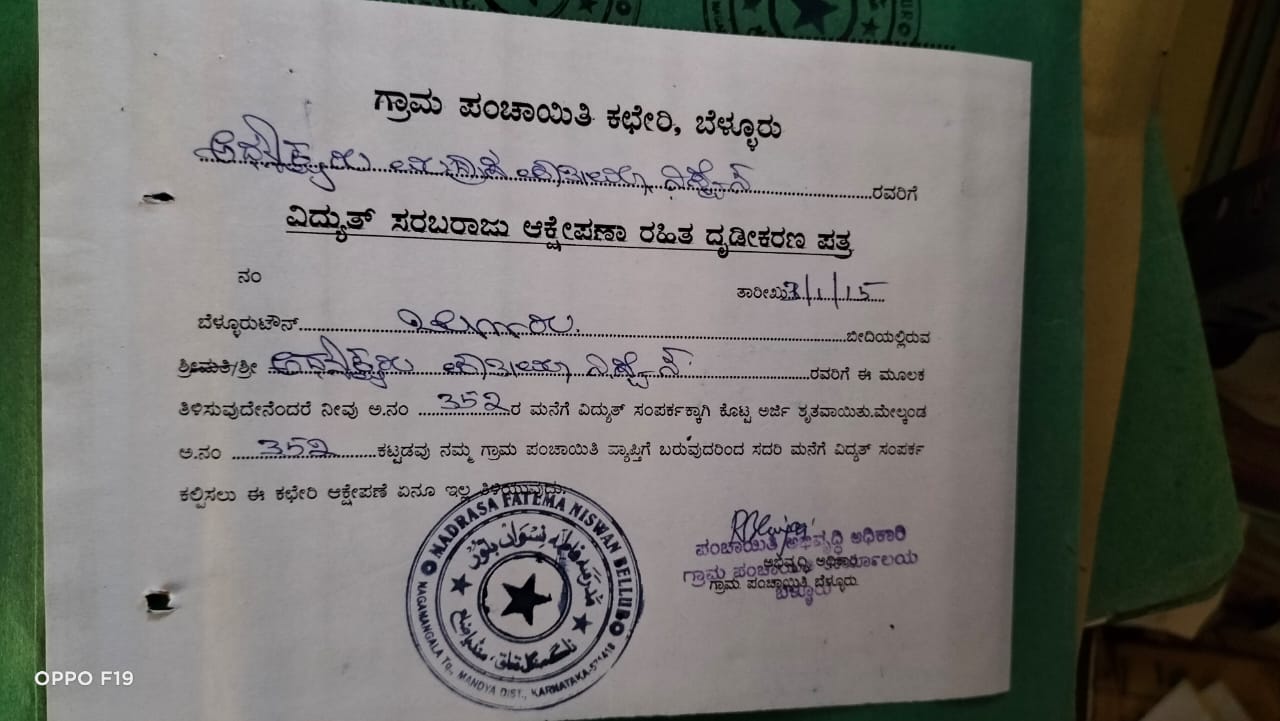 ಗ್ರಾಮ ಪಂಚಾಯಿತಿ ಕಛೇರಿ, ಬೆಳ್ಳೂರು
ಅಧ್ಯಕ್ಷರು ಮದ್ರಾಸೆ ಫಾತೀಮಾ ನಿಶ್ವಾನ್ ರವರಿಗೆ
ವಿದ್ಯುತ್ ಸರಬರಾಜು ಆಕ್ಷೇಪಣಾ ರಹಿತ ದೃಢೀಕರಣ ಪತ್ರ
ನಂ
ತಾರೀಖು 3/1/15
ಬೆಳ್ಳೂರುಟೌನ್ ಬೀದಿಯಲ್ಲಿರುವ
ಶ್ರೀಮತಿ/ಶ್ರೀ ಅಧ್ಯಕ್ಷರು ಫಾತೀಮಾ ನಿಶ್ವಾನ್ ರವರಿಗೆ ಈ ಮೂಲಕ
ತಿಳಿಸುವುದೇನೆಂದರೆ ನೀವು ಅ.ನಂ 352 ರ ಮನೆಗೆ ವಿದ್ಯುತ್ ಸಂಪರ್ಕಕ್ಕಾಗಿ ಕೊಟ್ಟ ಅರ್ಜಿ ಶೃತವಾಯಿತು.ಮೇಲ್ಕಂಡ
ಅ.ನಂ 352 ಕಟ್ಟಡವು ನಮ್ಮ ಗ್ರಾಮ ಪಂಚಾಯಿತಿ ವ್ಯಾಪ್ತಿಗೆ ಬರುವುದರಿಂದ ಸದರಿ ಮನೆಗೆ ವಿದ್ಯತ್ ಸಂಪರ್ಕ
ಕಲ್ಪಿಸಲು ಈ ಕಛೇರಿ ಆಕ್ಷೇಪಣೆ ಏನೂ ಇಲ್ಲ ತಿಳಿಯುವುದು.
MADRASA FATEMA NISWAN BELLUR
مدرسہ فاطمہ نسواں بلور
NAGAMANGALA Tq., MANDYA DIST., KARNATAKA-571418
ಪಂಚಾಯಿತಿ ಅಭಿವೃದ್ಧಿ ಅಧಿಕಾರಿ
ಅಭಿವೃದ್ಧಿ ಅಧಿಕಾರಿ
ಗ್ರಾಮ ಪಂಚಾಯಿತಿ ಕಾರ್ಯಾಲಯ
ಗ್ರಾಮ ಪಂಚಾಯಿತಿ ಬೆಳ್ಳೂರು
ಬೆಳ್ಳೂರು
OPPO F19